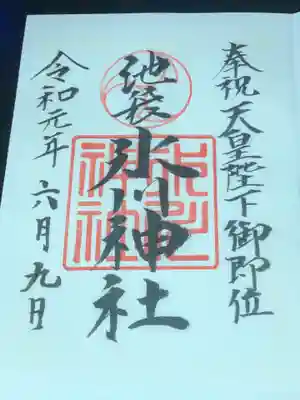 奉祝 天皇陛下御即位
池袋
氷川神社
令和元年六月九日